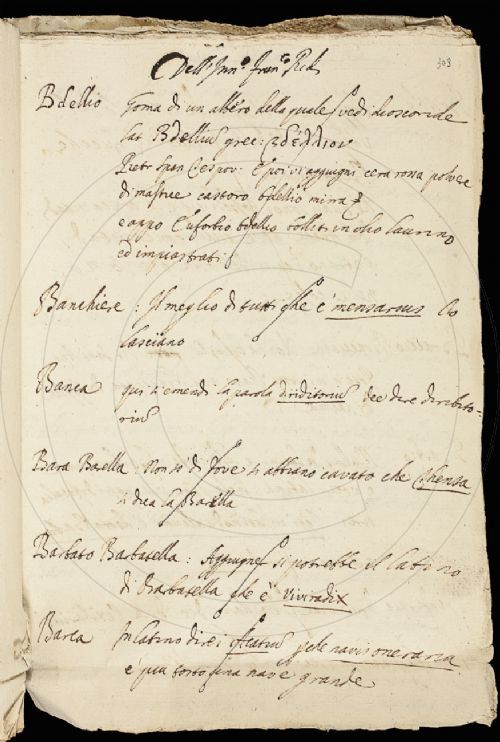 Dell' Ill.mo Fran.co Redi
303
Bdellio Goma di un albero della quale vedi Dioscoride
lat. Bdellium grec: βδέλλιον
Pietr Span Tes pov: E poi vi aggiugni cera rossa polvere
di mastice castoro bdellio mirra
e appo Euforbio bdellio bolliti in olio laurino
ed impiastrati
Banchiere : Il meglio di tutti che è mensarius lo
lasciano
Banca qui si emendi la parola diriditorium dee dire diribito-
rium
Bara Barella : Non so di dove si abbiano cavato che Thensa
si dica la Barella
Barbato Barbatella : Aggiugner si potrebbe il latino
di Barbatella che è viviradix
Barca In latino direi perche navis oneraria
è piu tosto una nave grande